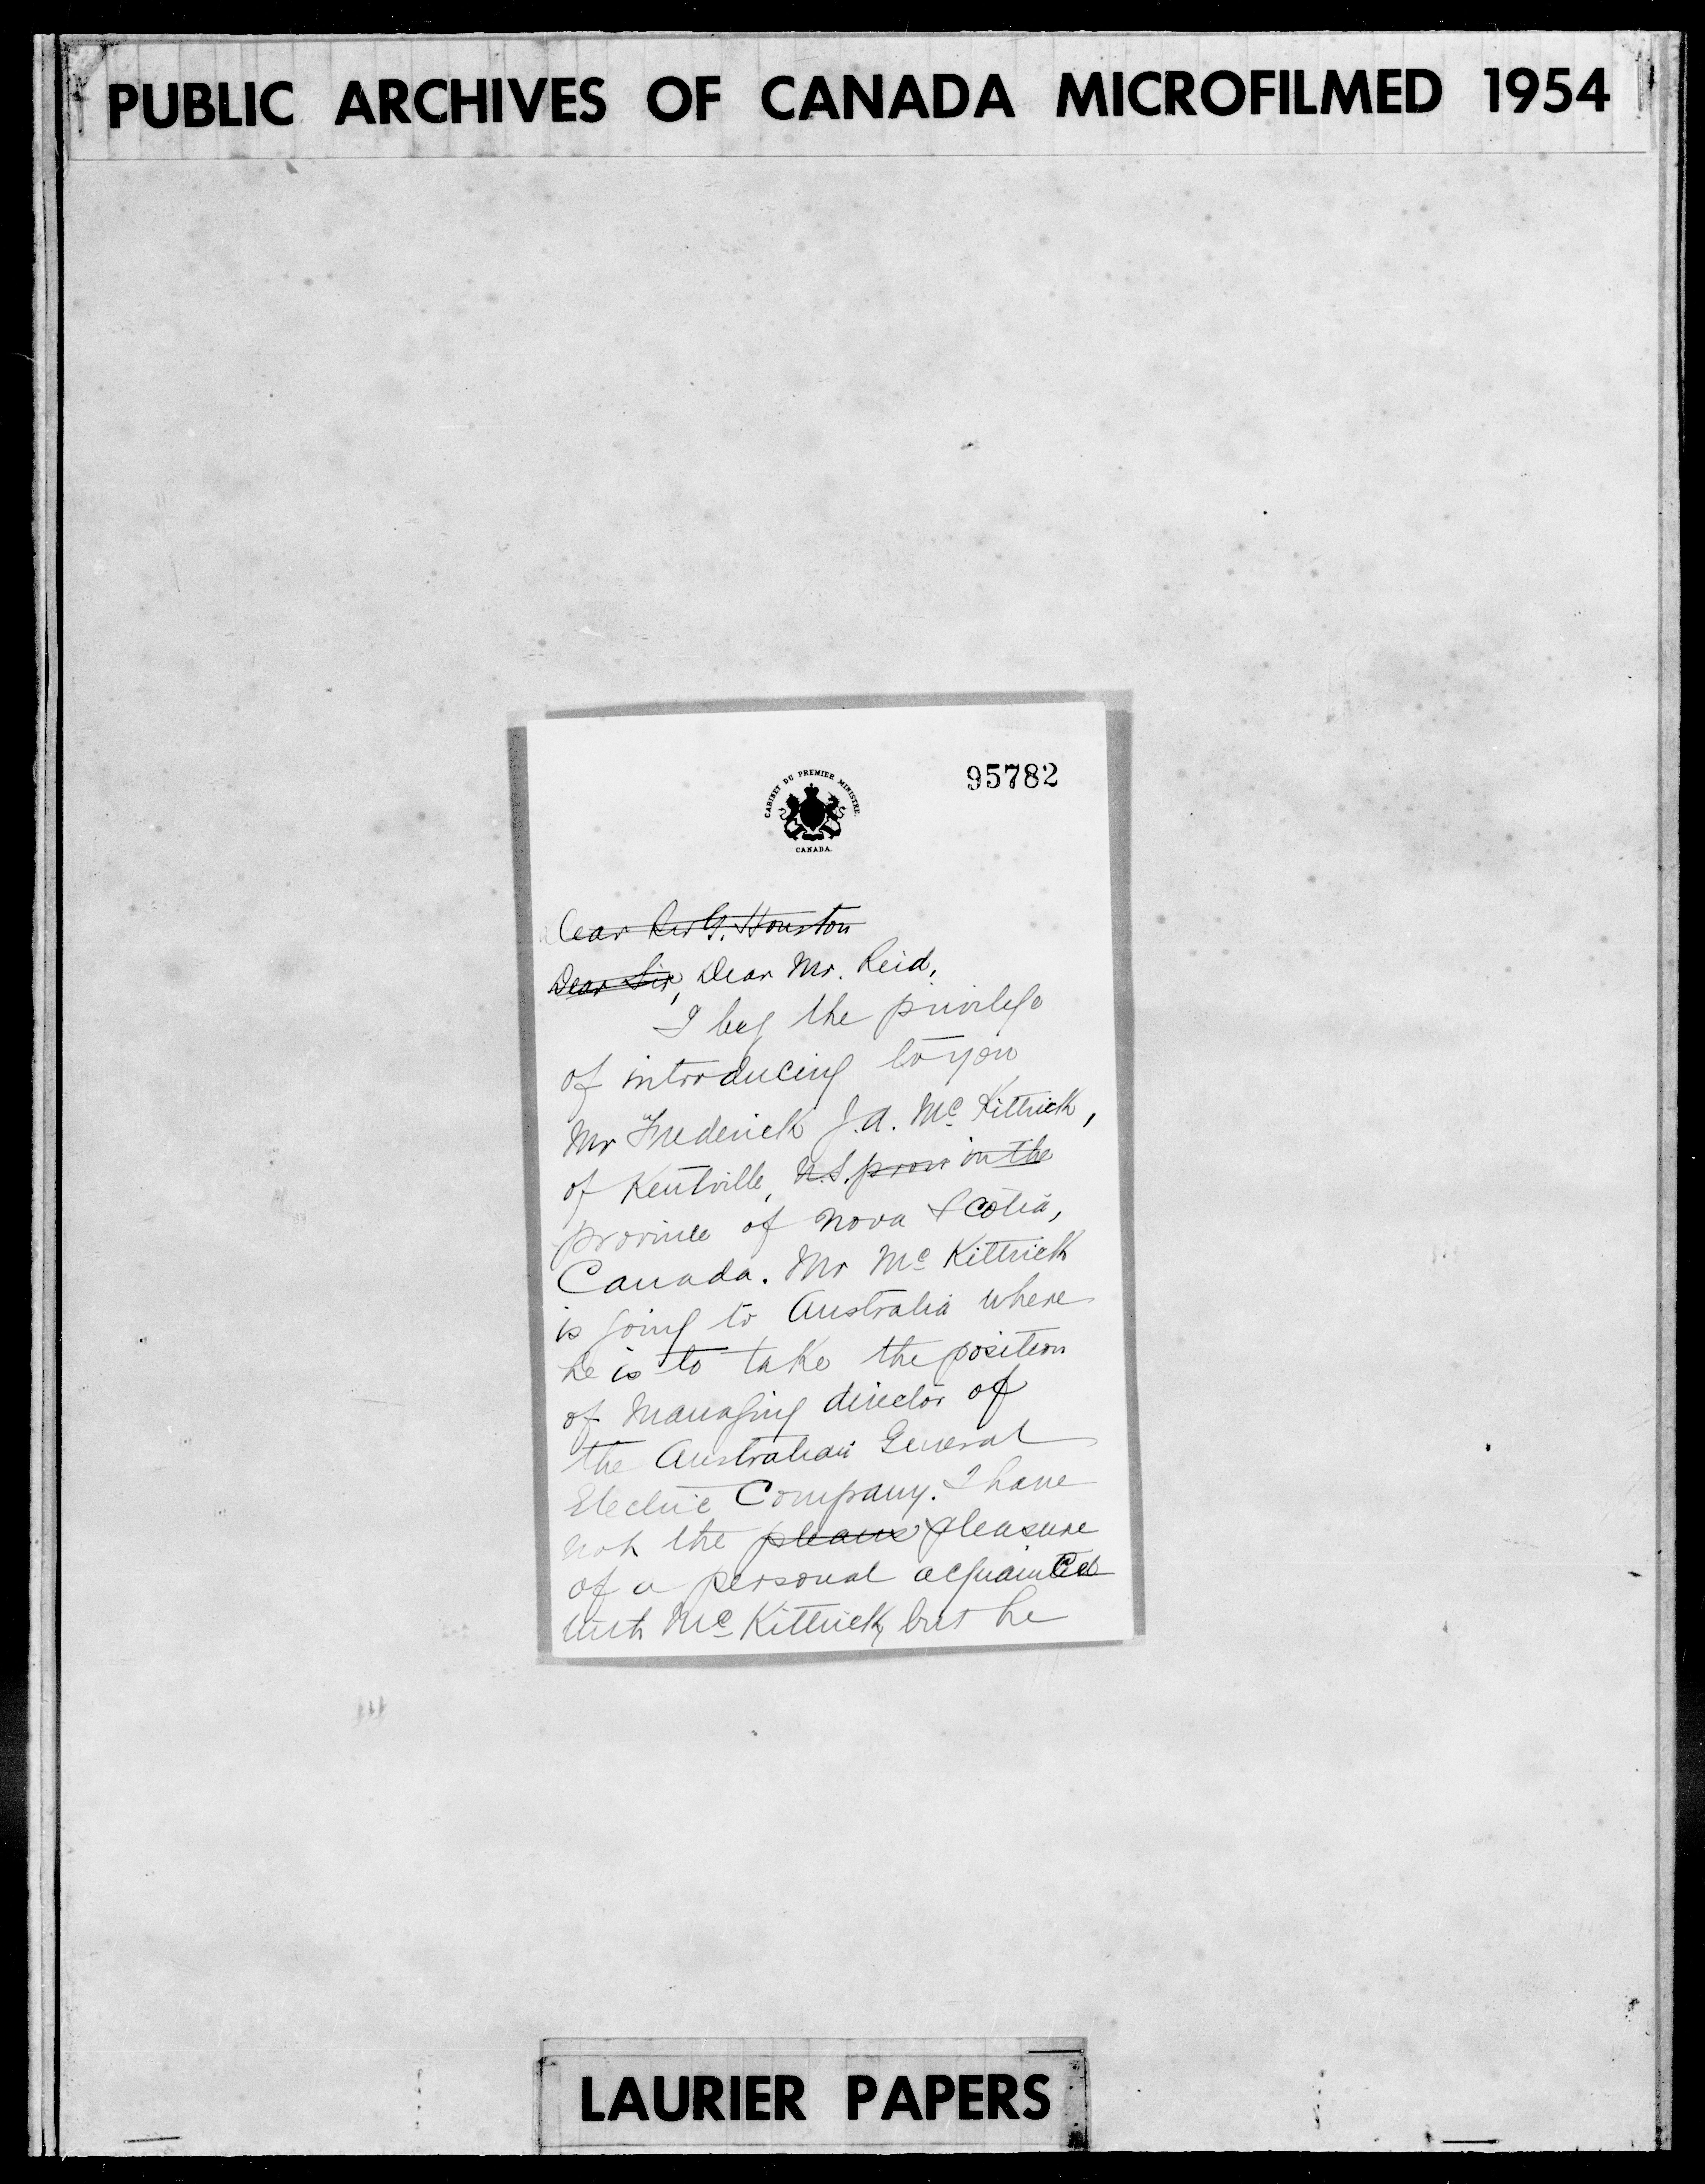 PUBLIC ARCHIVES OF CANADA MICROFILMED 1954
95782
CABINET DU PREMIER MINISTRE.
CANADA.
Dear G. Houston
Dear Sir, Dear Mr. Reid,
I beg the privilege
of introducing to you
Mr Frederick J.A. McKittrick,
of Kentville, N.S. prov in the
province of Nova Scotia,
Canada. Mr McKittrick
is going to Australia where
he is to take the position
of managing director of
the Australian General
Electric Company. I have
not the pleasure
of a personal acquainted
with McKittrick, but he
LAURIER PAPERS